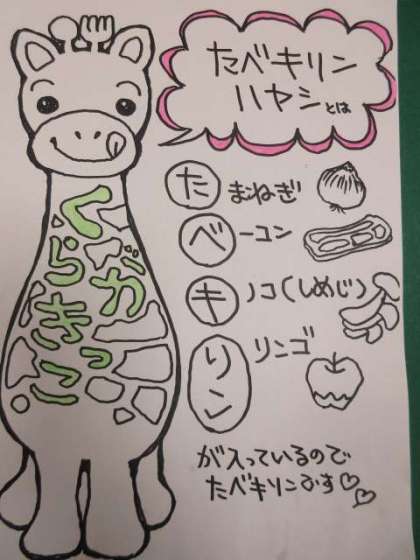 たベキリン
ハヤシとは
たまねぎ
ベーコン
キノコ(しめじ)
リンリンゴ
が入っているので
たベキリン
くらがきっこ